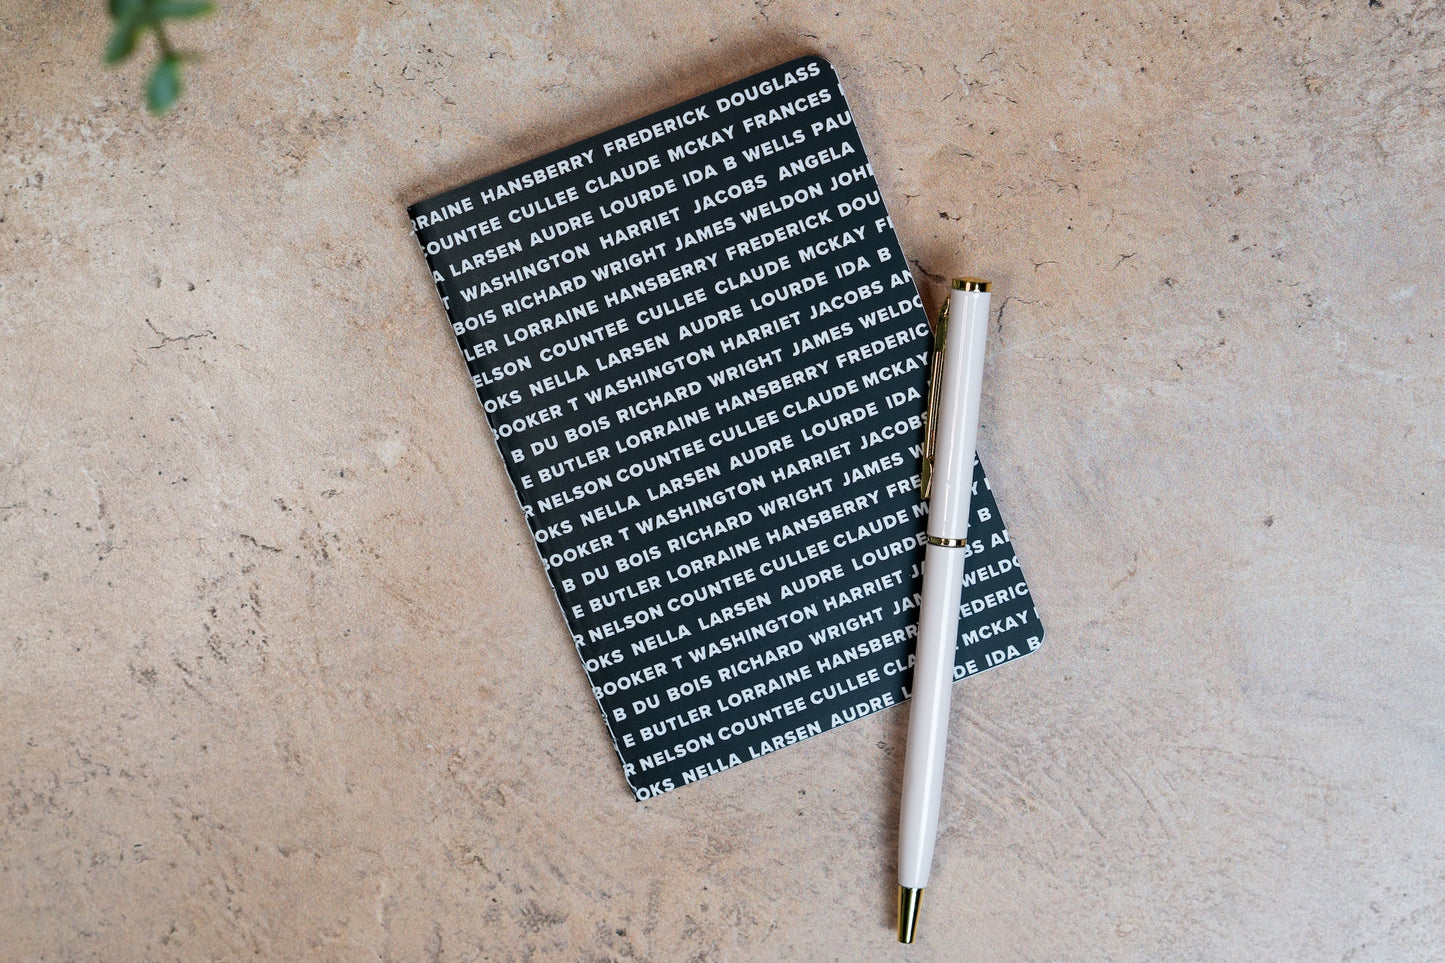 RRAINE HANSBERRY FREDERICK DOUGLASS
OUNTEE CULLEE CLAUDE MCKAY FRANCES
A LARSEN AUDRE LOURDE IDA B WELLS PAU
T WASHINGTON HARRIET JACOBS ANGELA
BOIS RICHARD WRIGHT JAMES WELDON JOH
LER LORRAINE HANSBERRY FREDERICK DOU
ELSON COUNTEE CULLEE CLAUDE MCKAY F
OKS NELLA LARSEN AUDRE LOURDE IDA B
BOOKER T WASHINGTON HARRIET JACOBS AN
B DU BOIS RICHARD WRIGHT JAMES WELDO
E BUTLER LORRAINE HANSBERRY FREDERIC
R NELSON COUNTEE CULLEE CLAUDE MCKAY
OKS NELLA LARSEN AUDRE LOURDE IDA
BOOKER T WASHINGTON HARRIET JACOBS
B DU BOIS RICHARD WRIGHT JAMES W
E BUTLER LORRAINE HANSBERRY FRE
R NELSON COUNTEE CULLEE CLAUDE M
OKS NELLA LARSEN AUDRE LOURDE B
BOOKER T WASHINGTON HARRIET JA BS AN
B DU BOIS RICHARD WRIGHT JAM WELDO
E BUTLER LORRAINE HANSBERRY EDERIC
R NELSON COUNTEE CULLEE CLA MCKAY
OKS NELLA LARSEN AUDRE L DE IDA B